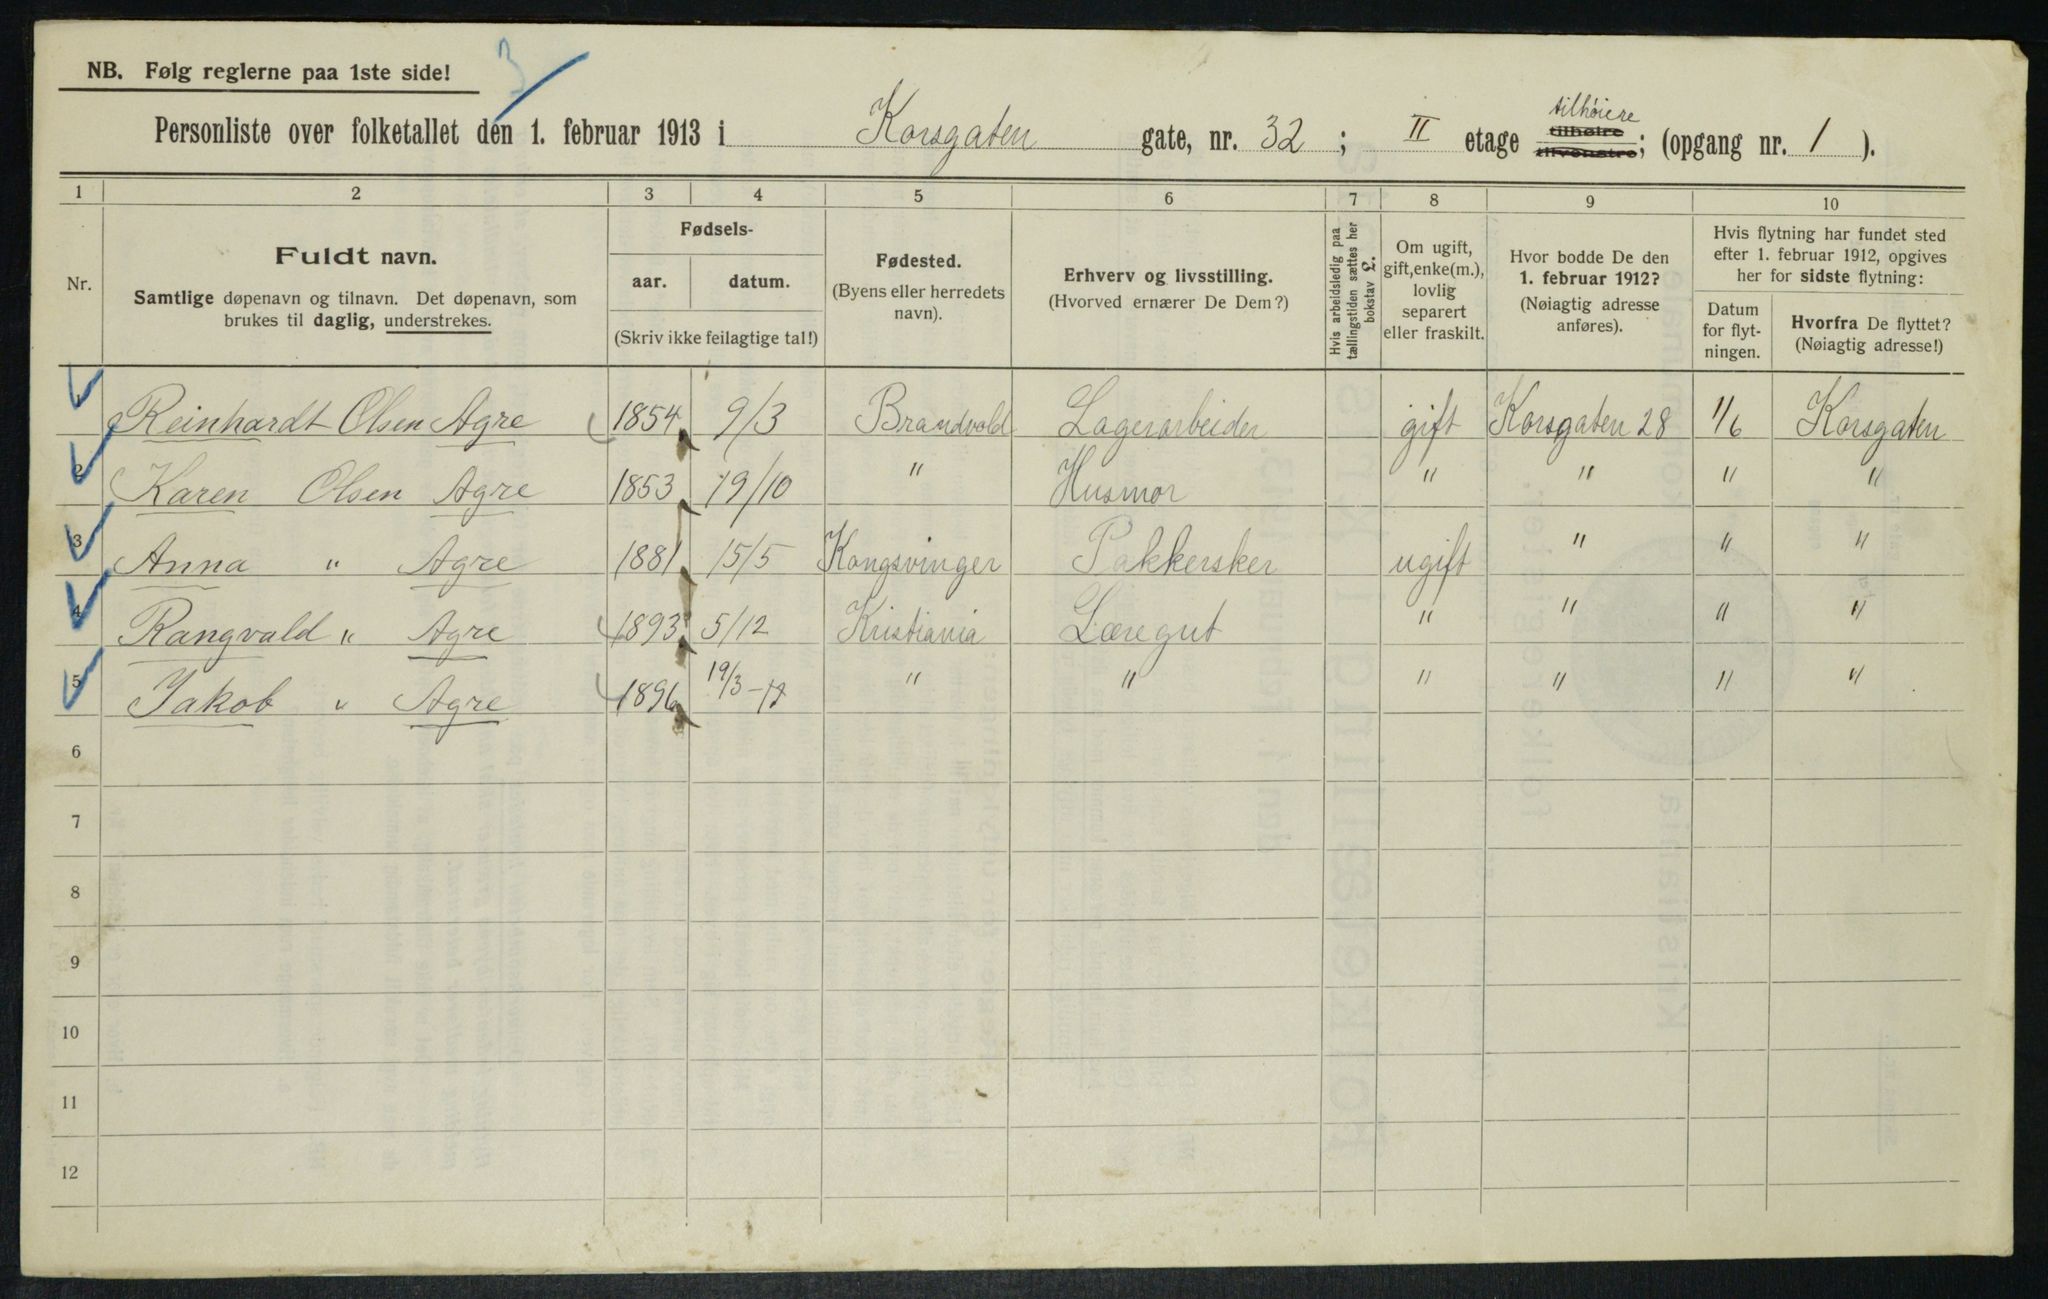 3
NB. Følg reglerne paa 1ste side!
Personliste over folketallet den 1. februar 1913 i Korsgaten gate, nr. 32 ; II etage tilhøire tilhøire tilvenstre; (opgang nr. 1 ).
1 2 3 4 5 6 7 8 9 10
Nr.
Fuldt navn.
Samtlige døpenavn og tilnavn. Det døpenavn, som
brukes til daglig, understrekes.
Fødsels-
aar. datum.
(Skriv ikke feilagtige tal!)
Fødested.
(Byens eller herredets
navn).
Erhverv og livsstilling.
(Hvorved ernærer De Dem?)
Hvis arbeidsledig paa
tællingstiden sættes her
bokstav L.
Om ugift,
gift, enke(m.),
lovlig
separert
eller fraskilt.
Hvor bodde De den
1. februar 1912?
(Nøiagtig adresse
anføres).
Hvis flytning har fundet sted
efter 1. februar 1912, opgives
her for sidste flytning:
Datum
for flyt-
ningen.
Hvorfra De flyttet?
(Nøiagtig adresse!)
1 Reinhardt Olsen Agre 1854 9/3 Brandvold Lagerarbeider gift Korsgaten 28 1/6 Korsgaten
2 Karen Olsen Agre 1853 19/10 " Husmor " " " "
3 Anna " Agre 1881 15/5 Kongsvinger Pakkersker ugift " " "
4 Rangvald " Agre 1893 5/12 Kristiania Læregut " " " "
5 Jakob " Agre 1896 19/3 " " " " " "
6
7
8
9
10
11
12